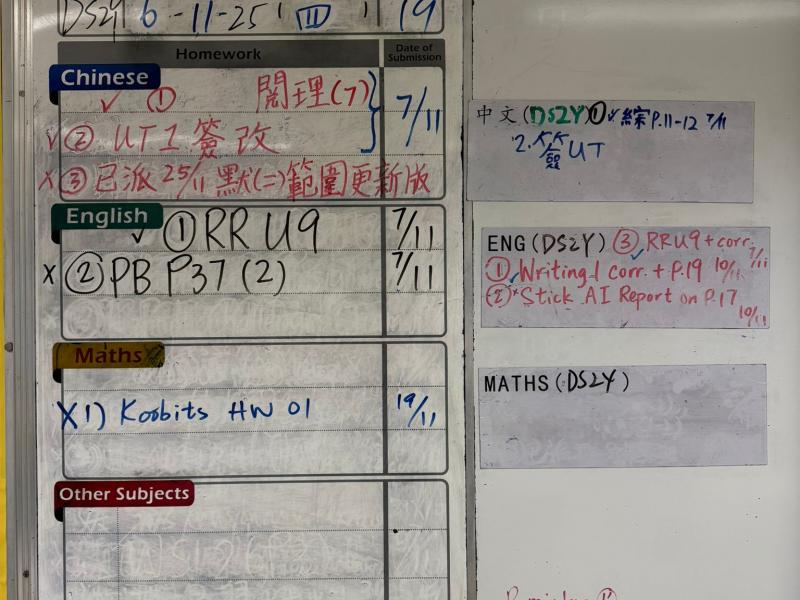 DS2Y 6-11-25 四 19
Homework Date of Submission
Chinese
✓ ① 閱理(7) 7/11
✓ ② UT1 簽改
X ③ 已派 25/11 默(二)範圍更新版
English
✓ ① RR U9 7/11
X ② PB P37 (2) 7/11
Maths
X 1) Koobits HW 01 19/11
Other Subjects
中文(DS2Y) ① ✓ 綜 P.11-12 7/11
2. 簽 UT
ENG (DS2Y) ③ RR U9 + corr. 7/11
① Writing 1 corr. + P.19 10/11
② x Stick AI Report on P.17 10/11
MATHS (DS2Y)